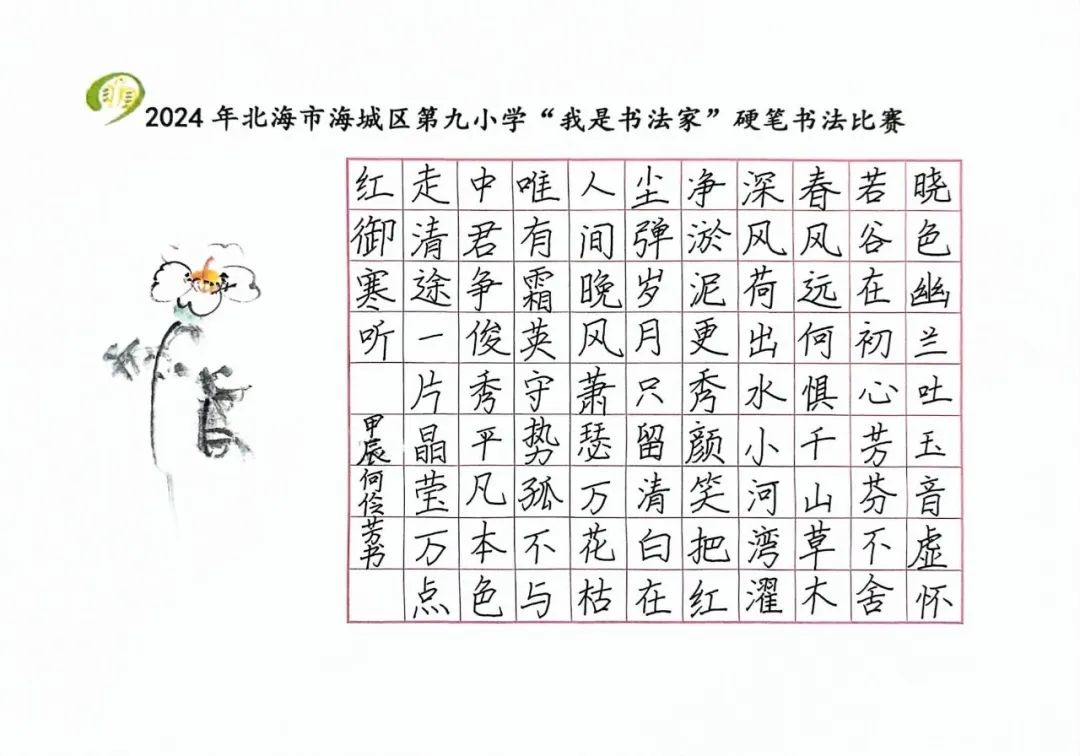 2024年北海市海城区第九小学“我是书法家”硬笔书法比赛
晓色幽兰吐玉音虚怀
若谷在初心芳芬不舍
春风远何惧千山草木
深风荷出水小河湾濯
净淤泥更秀颜笑把红
尘弹岁月只留清白在
人间晚风萧瑟万花枯
唯有霜英守势孤不与
中君争俊秀平凡本色
走清途一片晶莹万点
红御寒听
甲辰何伶芳书